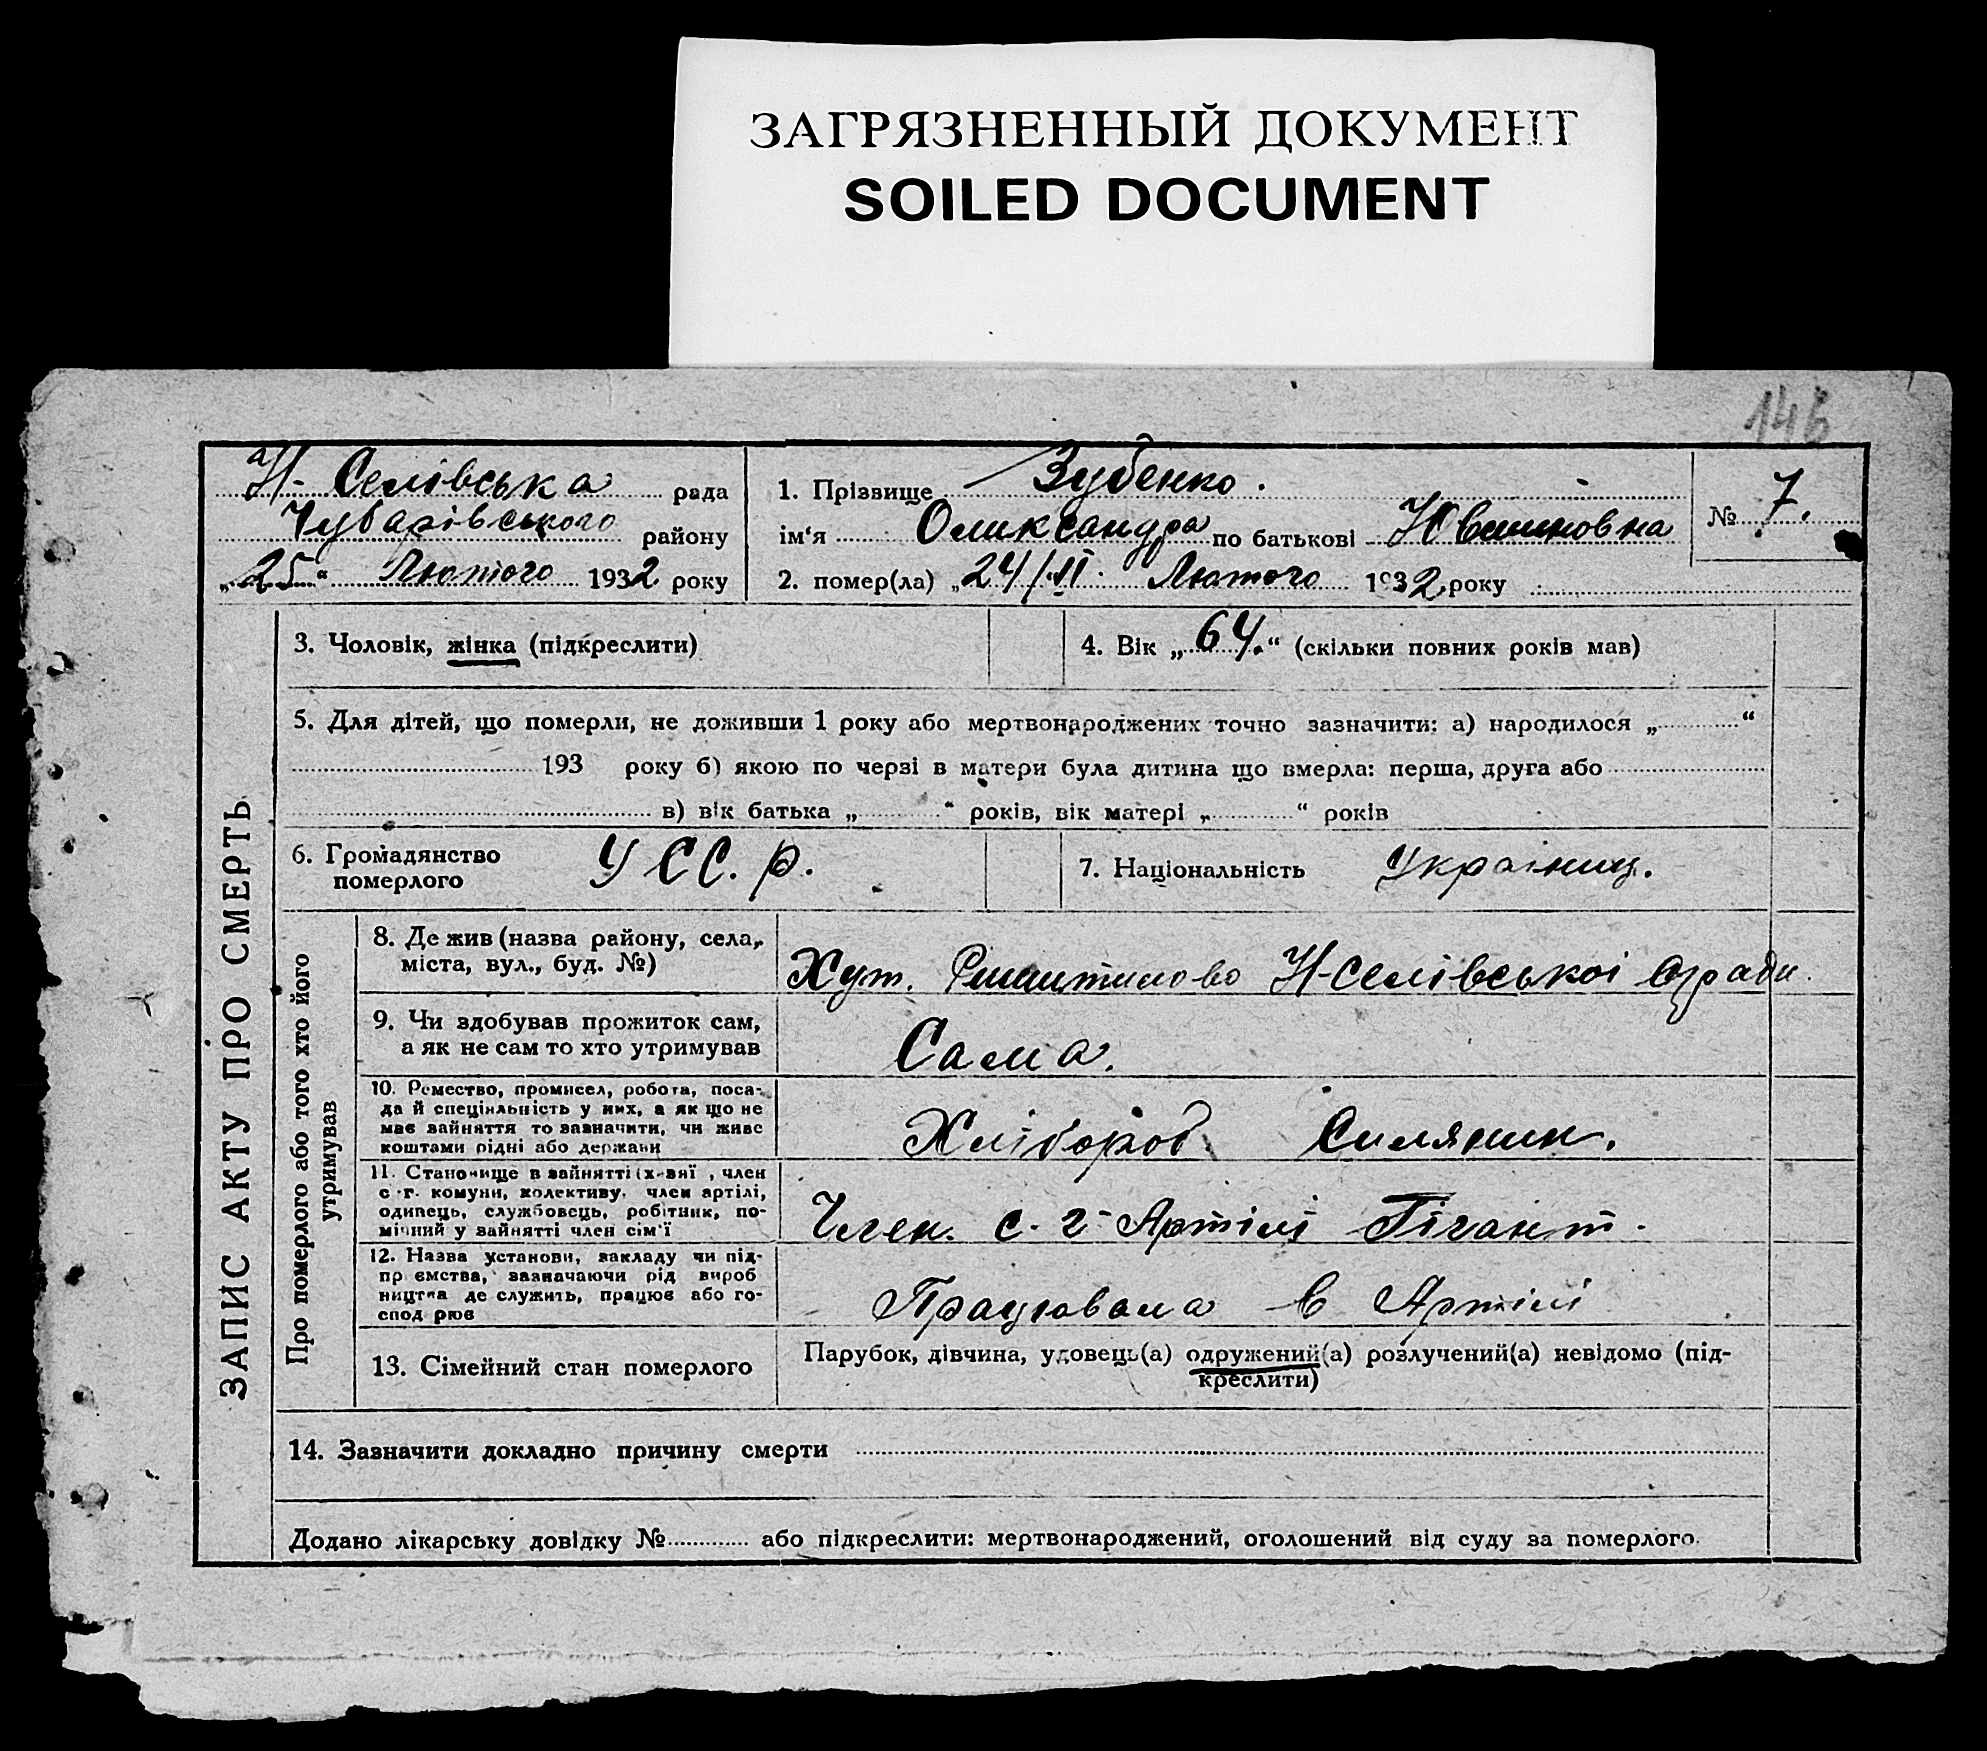 ЗАГРЯЗНЕННЫЙ ДОКУМЕНТ
SOILED DOCUMENT
146
Н- Селівська рада
Чубарівського району
„25“ Лютого 1932 року
1. Прізвище Зубенко.
ім‘я Оликсандра по батькові
2. помер(ла) „24/II Лютого 1932 року
№ 7.
ЗАПИС АКТУ ПРО СМЕРТЬ
3. Чоловік, жінка (підкреслити)
4. Вік „64.“ (скільки повних років мав)
5. Для дітей, що померли, не доживши 1 року або мертвонароджених точно зазначити: а) народилося „ “
193 року б) якою по черзі в матери була дитина що вмерла: перша, друга або
в) вік батька „ “ років, вік матері „ “ років
6. Громадянство
померлого
УССР.
7. Національність Українц.
Про померлого або того хто його
утримував
8. Де жив (назва району, села,
міста, вул., буд. №)
Хут. Н-Селівської с/ради
9. Чи здобував прожиток сам,
а як не сам то хто утримував
Сама.
10. Ремество, промисел, робота, поса-
да й спеціяльність у них, а як що не
має зайняття то зазначити, чи живе
коштами рідні або держави
Хлібороб Силяник.
11. Становище в зайнятті (х-вяї , член
с.-г. комуни, колективу, член артілі,
одинець, службовець, робітник, по-
мічний у зайнятті член сім'ї
Член. с-г Артілі Гігант.
12. Назва установи, закладу чи під-
пр ємства, зазначаючи рід вироб
ництва де служить, працює або го-
спод рює
Працювала в Артілі
13. Сімейний стан померлого
Парубок, дівчина, удовець(а) одружений(а) розлучений(а) невідомо (під-
креслити)
14. Зазначити докладно причину смерти
Додано лікарську довідку № або підкреслити: мертвонароджений, оголошений від суду за померлого.